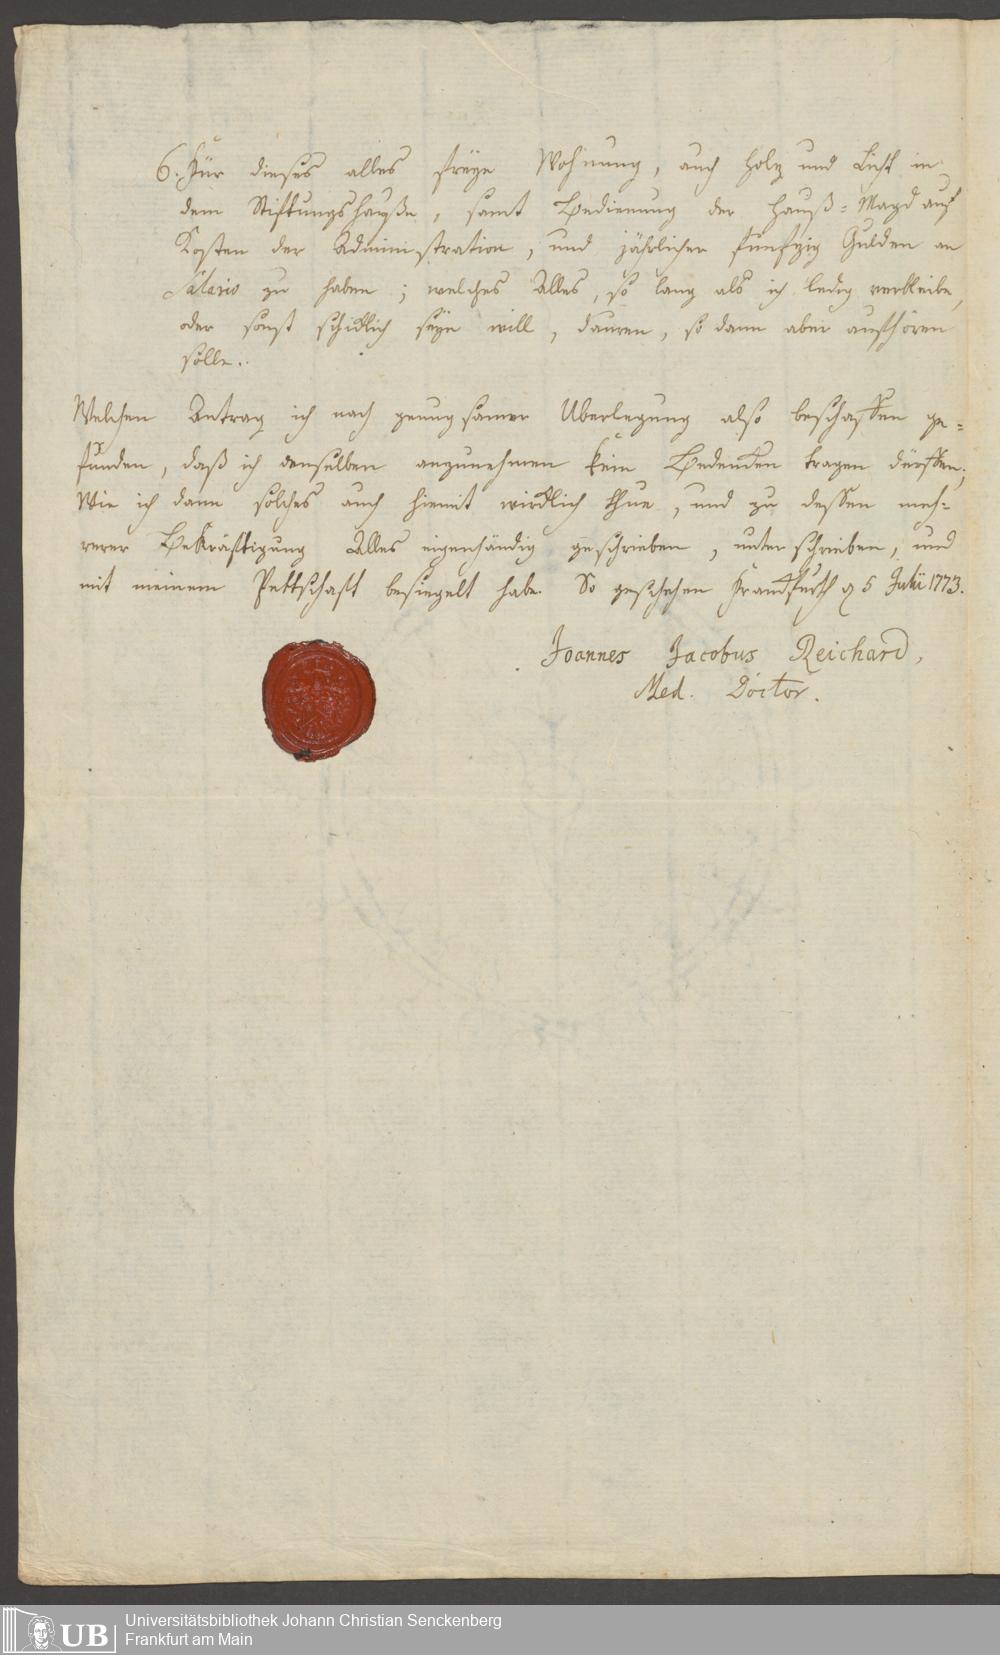 6. Für dieses alles freÿe Wohnung, auch Holz und Licht in
dem Stiftungshauße, samt Bedienung der Hauß=Magd auf
Kosten der Administration, und jährlicher funfzig Gulden an
Salario zu haben; welches Alles, so lang als ich ledig verbleibe,
oder sonst schicklich seÿn will, dauren, so dann aber aufhören
solle.
Welchen Antrag ich nach genugsamer Uberlegung also beschaffen ge=
funden, daß ich denselben anzunehmen kein Bedencken tragen dürffen;
Wie ich dann solches auch hiemit würcklich thue, und zu dessen meh=
rerer Bekräftigung Alles eigenhändig geschrieben, unterschrieben, und
mit meinem Pettschaft besiegelt habe. So geschehen Franckfurth 5 Julii 1773.
Joannes Jacobus Reichard,
Med. Doctor.
UB
Universitätsbibliothek Johann Christian Senckenberg
Frankfurt am Main